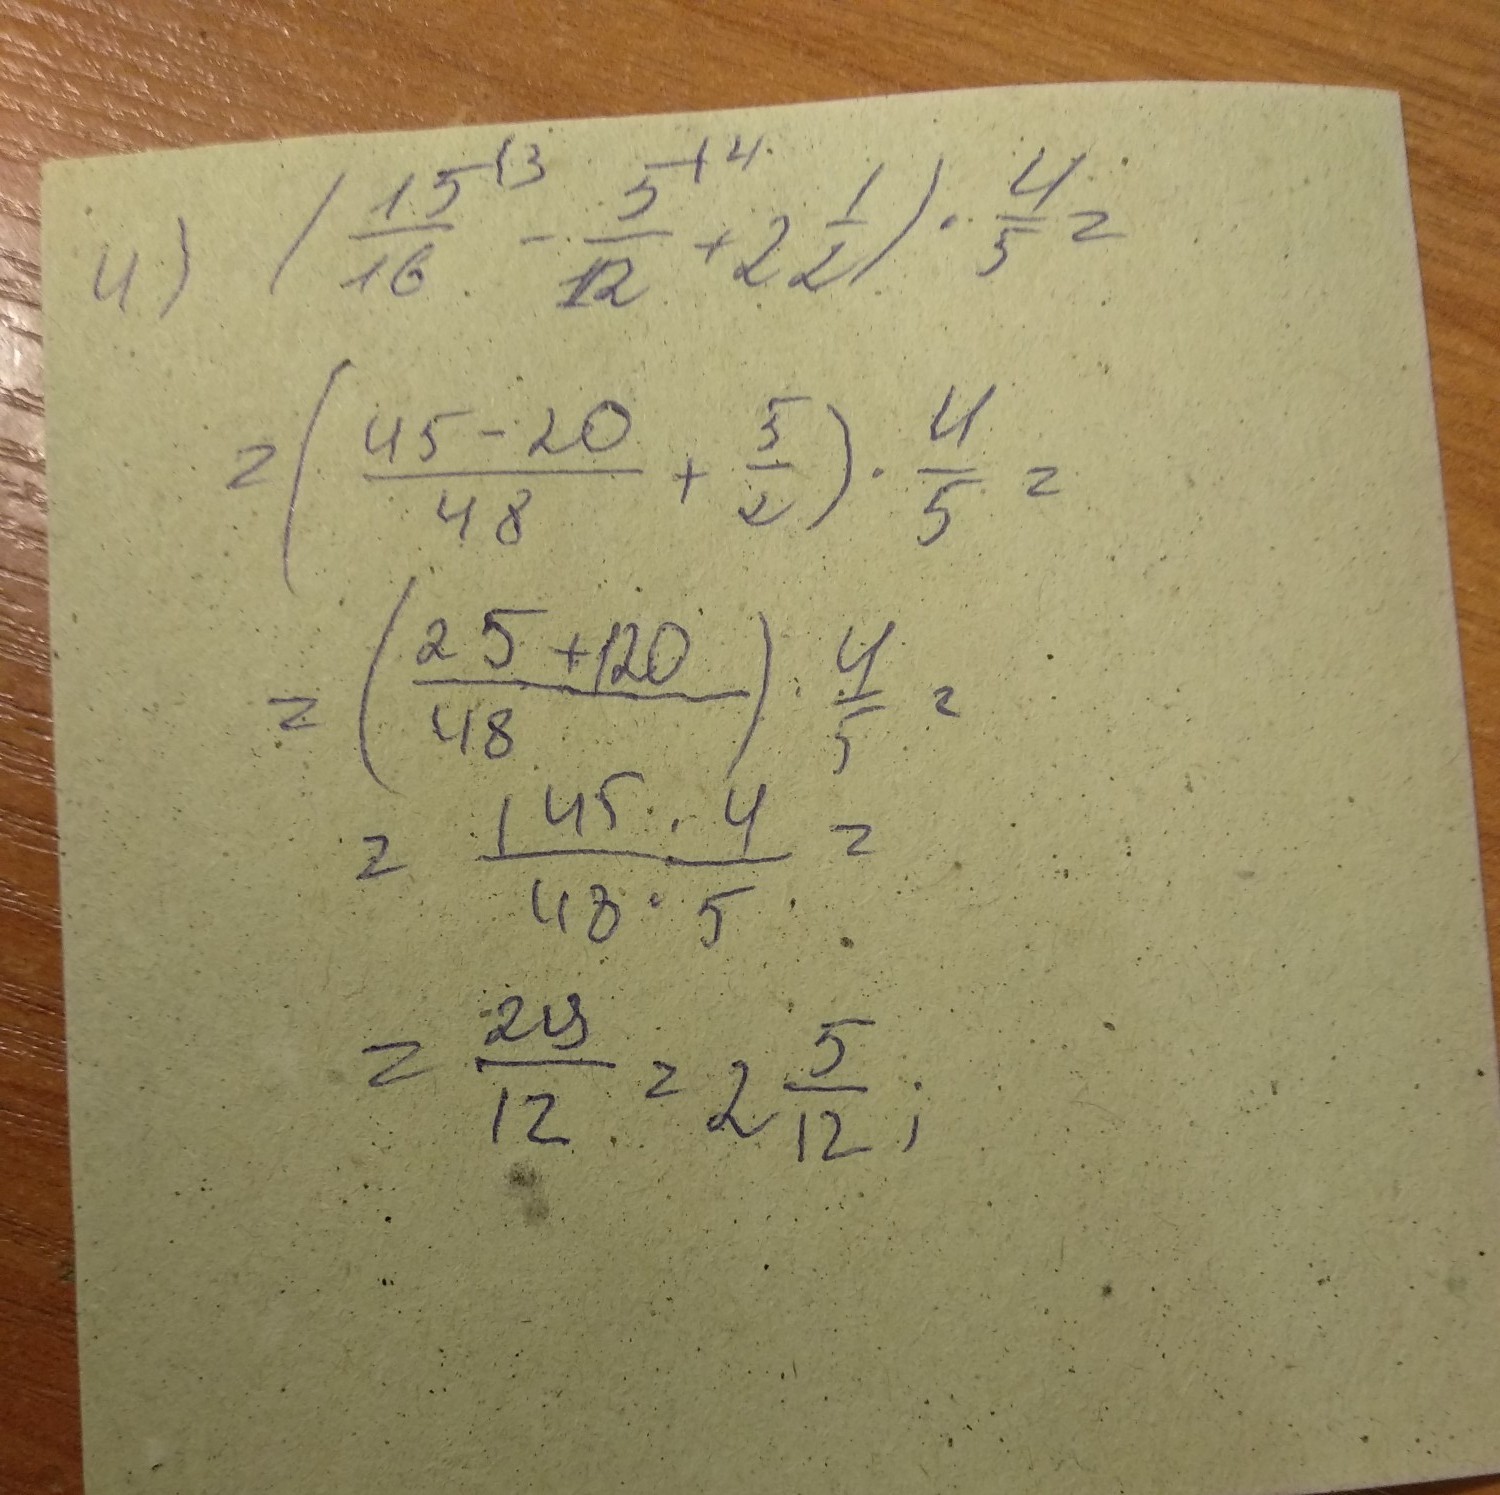 4) (15/16 - 5/12 + 2 1/2) · 4/5 =
= (45-20/48 + 5/2) · 4/5 =
= (25+120/48) · 4/5 =
= 145 · 4/48 · 5 =
= 29/12 = 2 5/12;